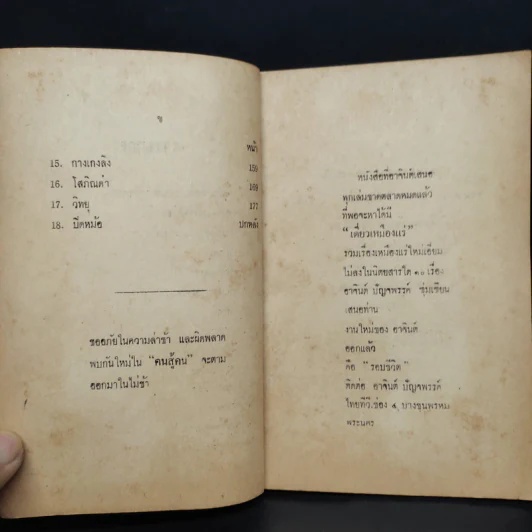 ข
หน้า
15. กางเกงลิง 159
16. โสภิณคำ 169
17. วิทยุ 177
18. บีดหม้อ ปกหลัง
ขออภัยในความล่าช้า และผิดพลาด
พบกันใหม่ใน "คนสู้คน" จะตาม
ออกมาในไม่ช้า
หนังสือที่อาจินต์เสนอ
ทุกเล่มขาดตลาดหมดแล้ว
ที่พอจะหาได้มี
"เดี่ยวเหมืองแร่"
รวมเรื่องเหมืองแร่ใหม่เอี่ยม
ไม่ลงในนิตยสารใด ๑๐ เรื่อง
อาจินต์ ปัญจพรรค์ เขียน
เสนอท่าน
งานใหม่ของ อาจินต์
ออกแล้ว
คือ "รอบชีวิต"
ติดต่อ อาจินต์ ปัญจพรรค์
ไทยทีวี.ช่อง ๔ บางขุนพรหม
พระนคร